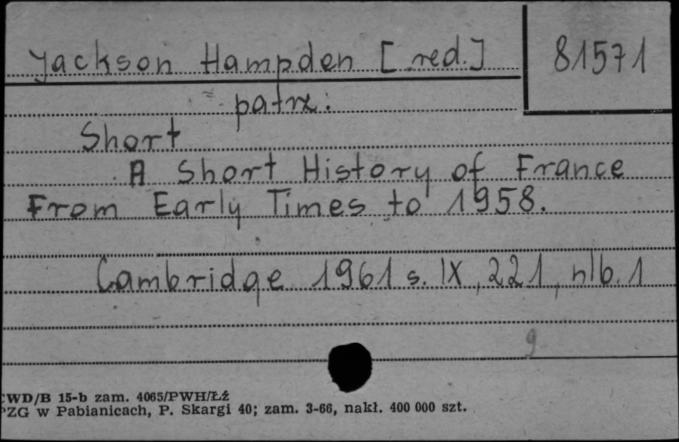 Jackson Hampden [red.] 81571
patrz:
Short
A Short History of France
From Early Times to 1958.
Cambridge 1961 s. IX, 221, nlb. 1
9
CWD/B 15-b zam. 4065/PWH/Łź
PZG w Pabianicach, P. Skargi 40; zam. 3-66, nakł. 400 000 szt.